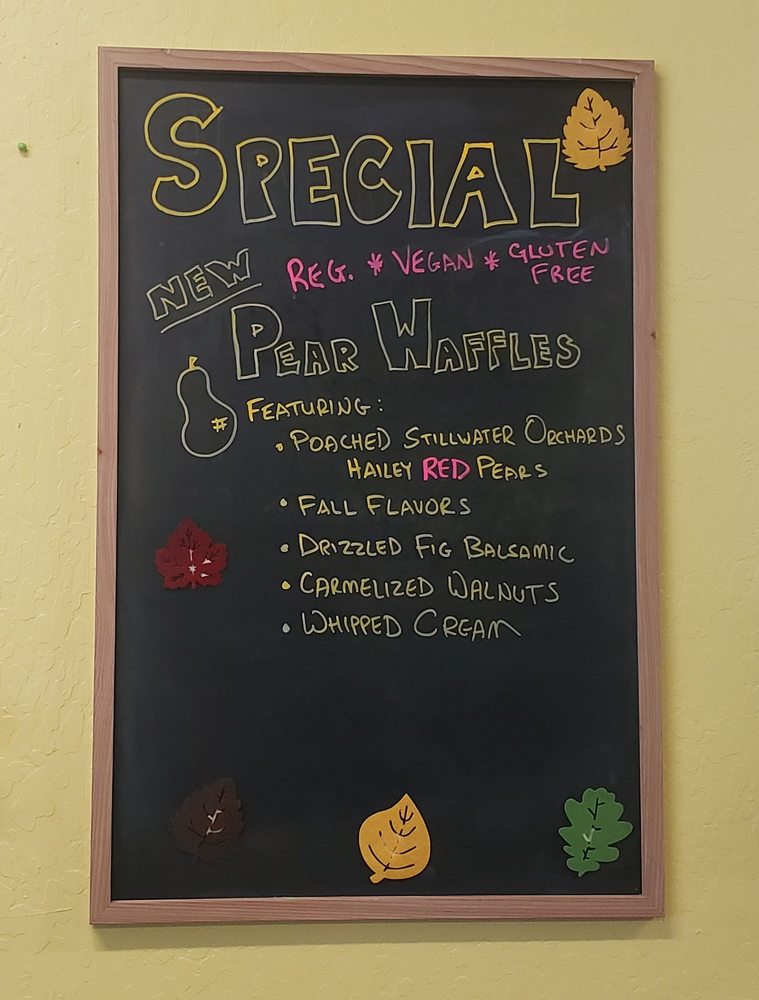 SPECIAL
NEW
REG. * VEGAN * GLUTEN
FREE
PEAR WAFFLES
# FEATURING:
• POACHED STILLWATER ORCHARDS
HAILEY RED PEARS
• FALL FLAVORS
• DRIZZLED FIG BALSAMIC
• CARMELIZED WALNUTS
• WHIPPED CREAM